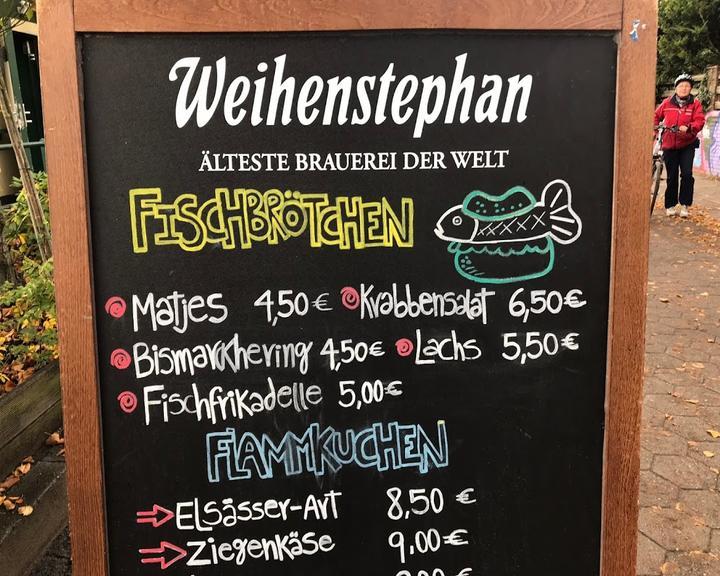 Weihenstephan
ÄLTESTE BRAUEREI DER WELT
FISCHBRÖTCHEN
Matjes 4,50€ Krabbensalat 6,50€
Bismarkhering 4,50€ Lachs 5,50€
Fischfrikadelle 5,00€
FlAMMKUCHEN
Elsässer-Art 8,50 €
Ziegenkäse 9.00€